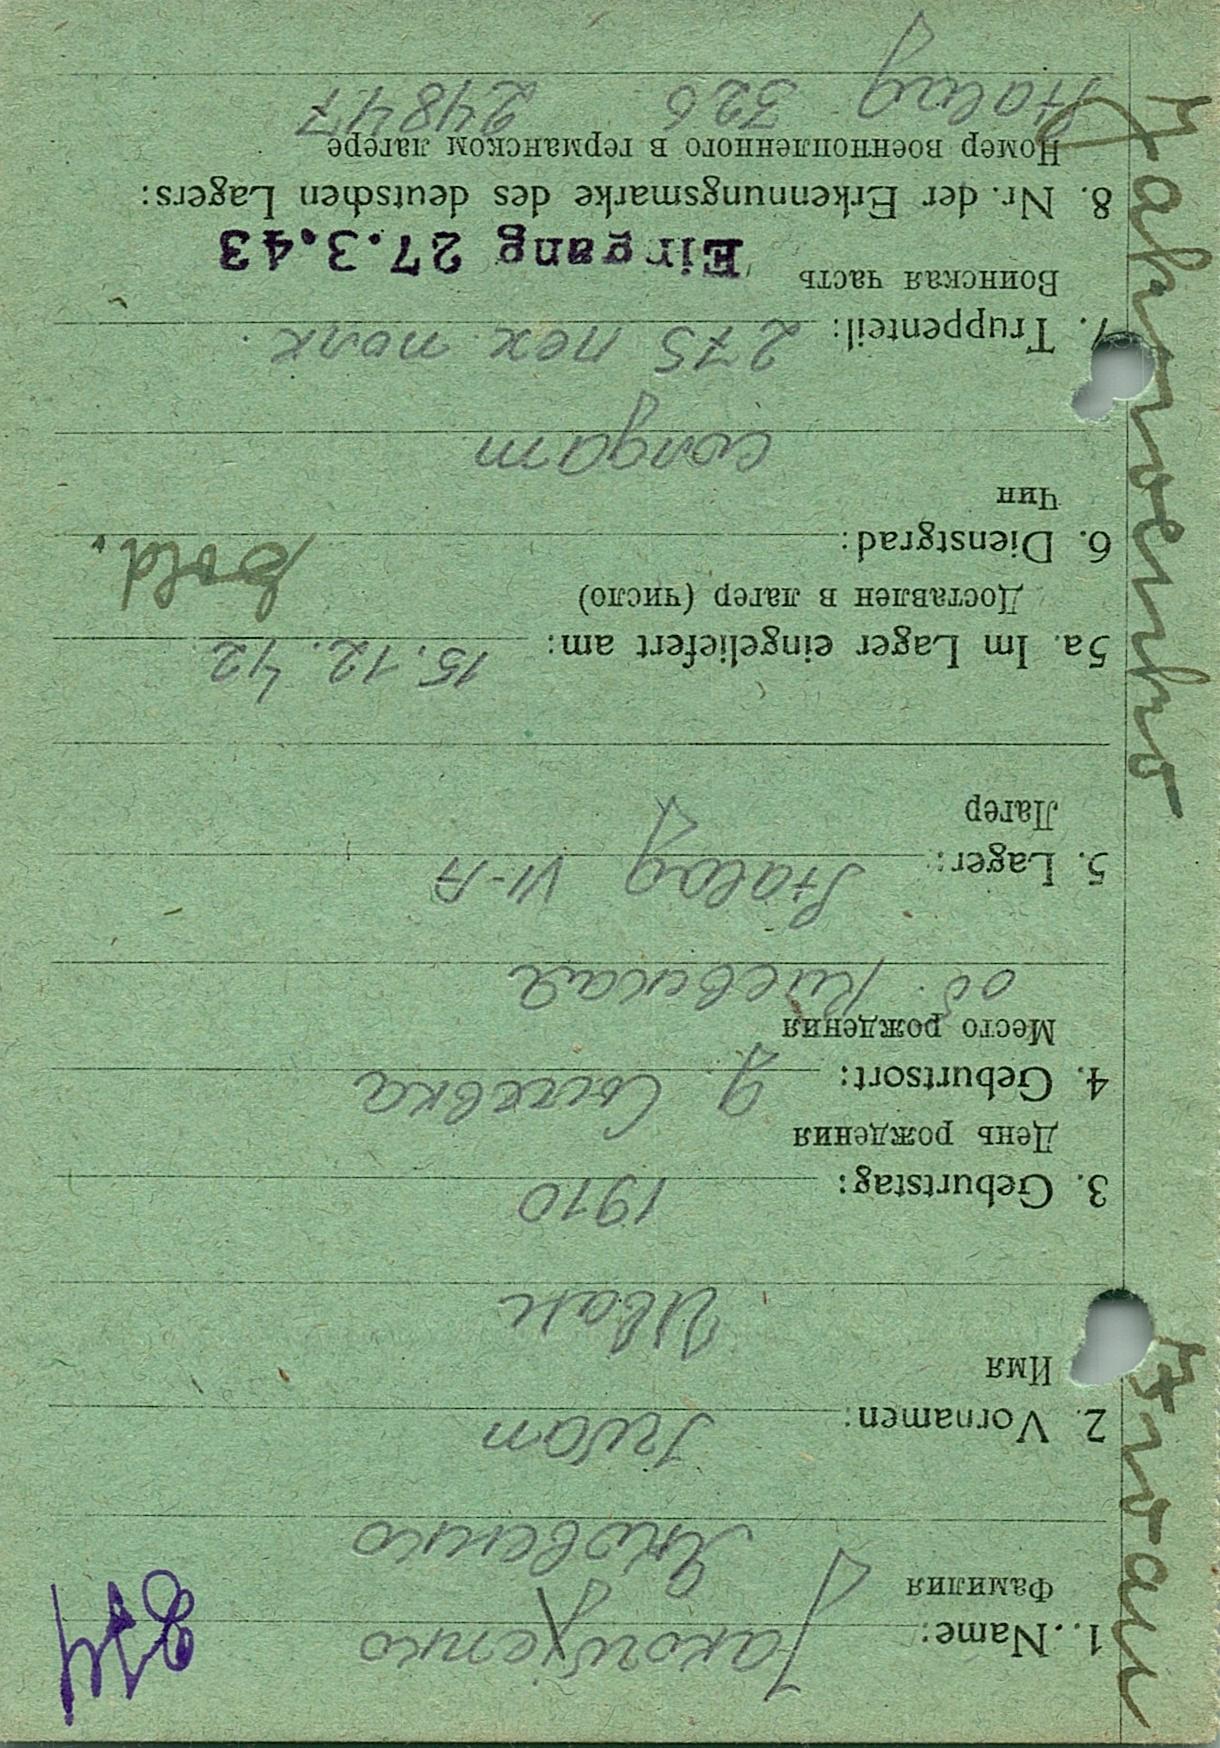 1. Name: Jakowenko
Фамилия Яковенко
2. Vornamen: Iwan
Имя
Иван
3. Geburtstag: 1910
День рождения
4. Geburtsort: д.
Место рождения
об. Киевская
5. Lager: Stalag VI-A
Лагер
5a. Im Lager eingeliefert am: 15.12.42
Доставлен в лагер (число)
6. Dienstgrad: Sold.
Чин
солдат
7. Truppenteil: 275 пех полк
Воинская часть Eingang 27.3.43
8. Nr. der Erkennungsmarke des deutschen Lagers:
Номер военнопленного в германском лагере
Stalag 326 24847
Iwan Jakowenko